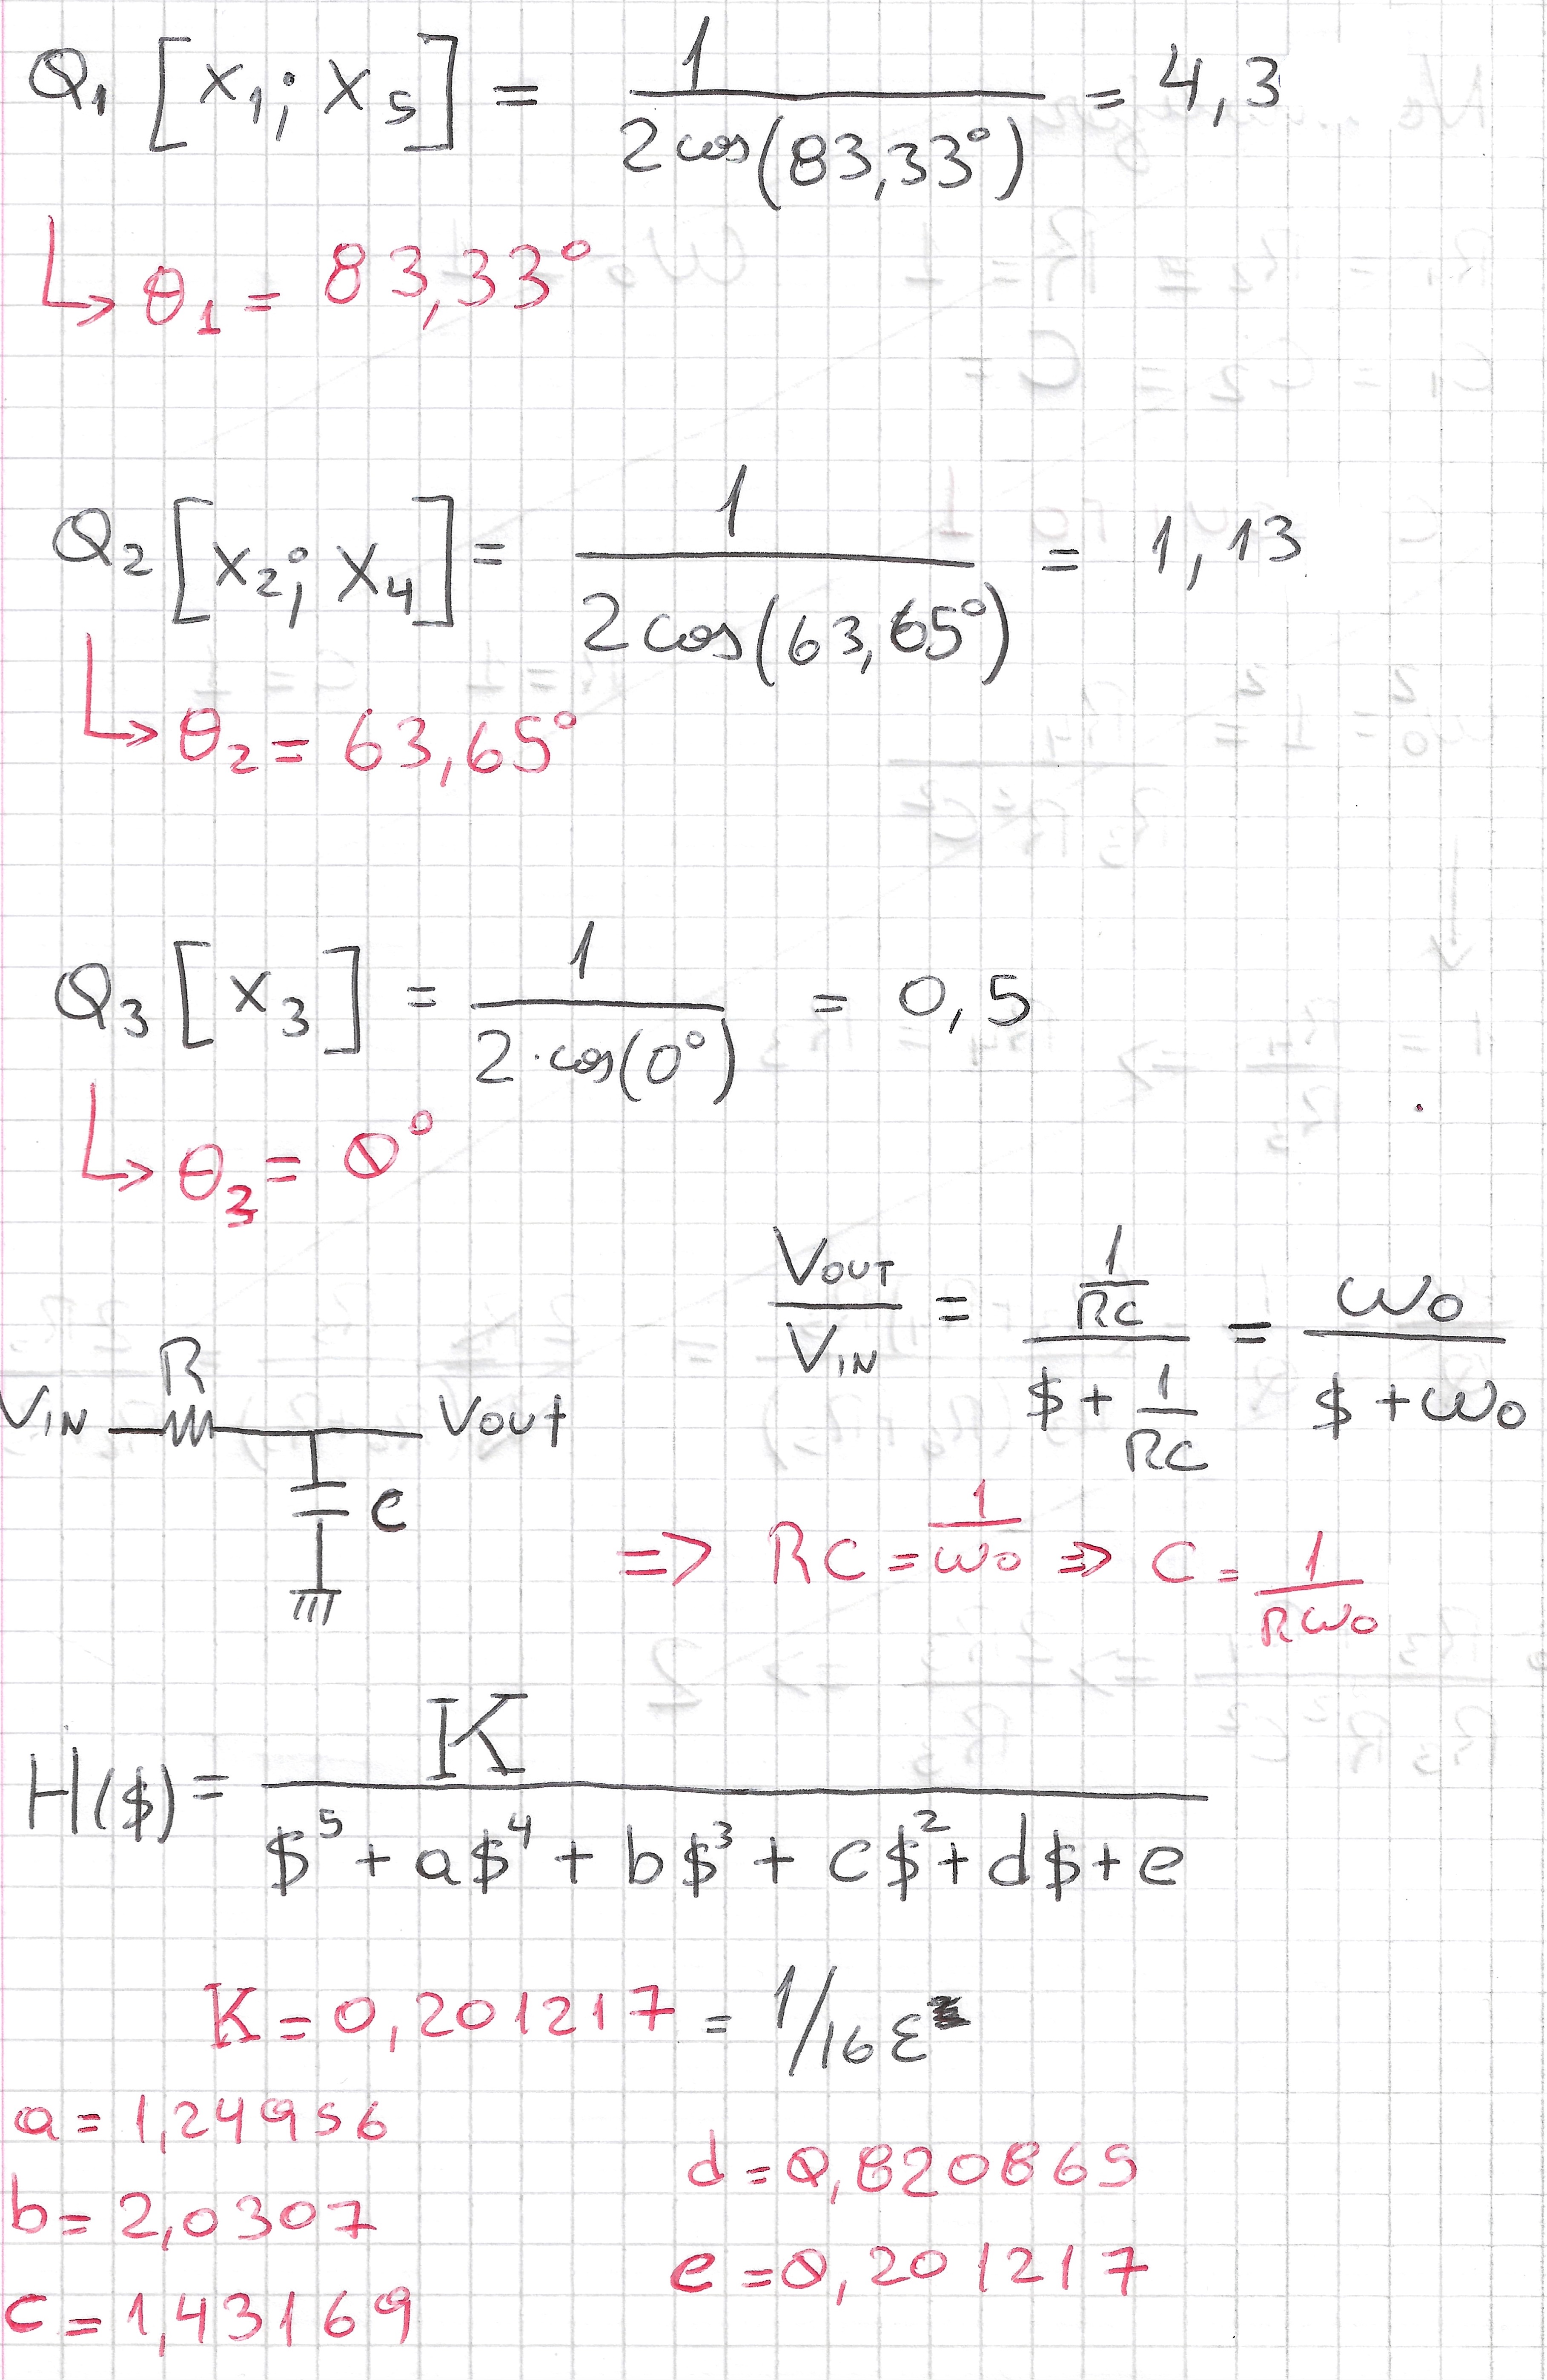 Q₁ [x₁; x₅] = 1 / 2cos(83,33°) = 4,3
↳ θ₁ = 83,33°
Q₂ [x₂; x₄] = 1 / 2cos(63,65°) = 1,13
↳ θ₂ = 63,65°
Q₃ [x₃] = 1 / 2·cos(0°) = 0,5
↳ θ₃ = 0°
VOUT / VIN = (1/RC) / ($ + 1/RC) = ω₀ / ($ + ω₀)
R
VIN VOUT
C
=> RC = 1/ω₀ => C = 1/Rω₀
H($) = K / $⁵ + a$⁴ + b$³ + c$² + d$ + e
K = 0,201217 = 1/16ε
a = 1,24956
d = 0,820865
b = 2,0307
e = 0,201217
c = 1,43169